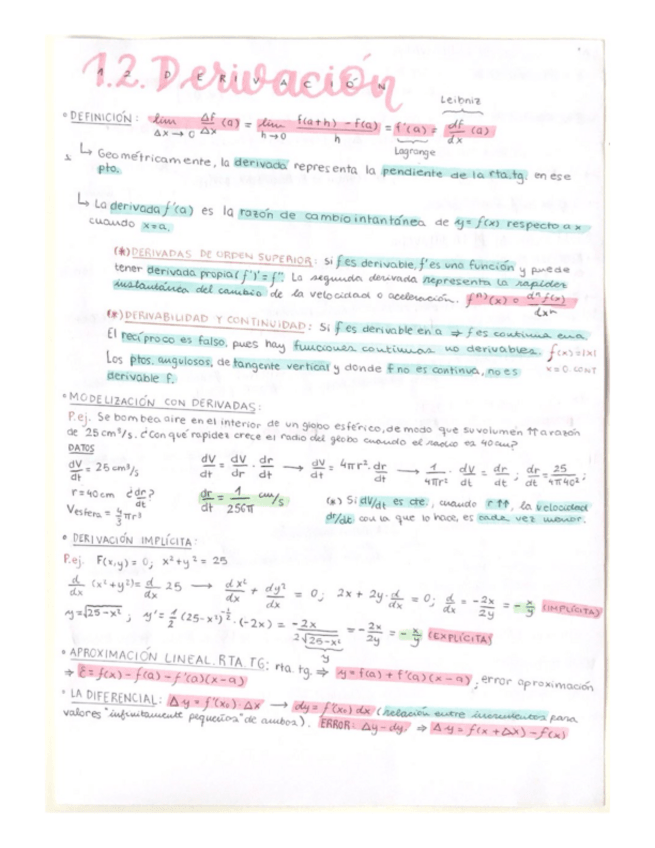 1.2. Derivación
1 2 D E R I V A C I Ó N
Leibniz
° DEFINICIÓN: lim Δx→0 Δf/Δx (a) = lim h→0 (f(a+h) - f(a))/h = f'(a) = df/dx (a)
Lagrange
↳ Geométricamente, la derivada representa la pendiente de la rta.tg. en ese
pto.
↳ La derivada f'(a) es la razón de cambio intantánea de y = f(x) respecto a x
cuando x=a.
(*) DERIVADAS DE ORDEN SUPERIOR: Si f es derivable, f' es una función y puede
tener derivada propia (f')' = f''. La segunda derivada representa la rapidez
instantánea del cambio de la velocidad o aceleración. f⁽ⁿ⁾(x) o dⁿf(x)/dxⁿ
(*) DERIVABILIDAD Y CONTINUIDAD: Si f es derivable en a ⇒ f es continua en a
El recíproco es falso, pues hay funciones continuas no derivables. f(x)=|x|
Los ptos. angulosos, de tangente vertical y donde f no es continua, no es x=0 CONT
derivable f.
° MODELIZACIÓN CON DERIVADAS:
P.ej. Se bombea aire en el interior de un globo esférico, de modo que su volumen ↑↑ a razón
de 25 cm³/s. ¿Con qué rapidez crece el radio del globo cuando el radio es 40 cm?
DATOS
dV/dt = 25 cm³/s dV/dt = dV/dr · dr/dt → dV/dt = 4πr² · dr/dt → 1/4πr² · dV/dt = dr/dt ; dr/dt = 25/4π40² ;
r = 40 cm ¿dr/dt? dr/dt = 1/256π cm/s (*) Si dV/dt es cte., cuando r↑↑, la velocidad
Vesfera = 4/3 πr³ dr/dt con la que lo hace, es cada vez menor.
° DERIVACIÓN IMPLÍCITA:
P.ej. F(x,y) = 0; x² + y² = 25
d/dx (x²+y²) = d/dx 25 → dx²/dx + dy²/dx = 0; 2x + 2y · d/dx = 0; d/dx = -2x/2y = -x/y (IMPLÍCITA)
y = √25-x² ; y' = 1/2 (25-x²)^-1/2 · (-2x) = -2x/2√25-x² = -2x/2y = -x/y (EXPLÍCITA)
y
° APROXIMACIÓN LINEAL. RTA. TG: rta. tg. ⇒ y = f(a) + f'(a) (x-a) ; error aproximación
⇒ E = f(x) - f(a) - f'(a)(x-a)
° LA DIFERENCIAL: Δy ≈ f'(x₀) · Δx → dy = f'(x₀) dx (relación entre incrementos para
valores "infinitamente pequeños" de ambos). ERROR: Δy - dy. ⇒ Δy = f(x+Δx) - f(x)